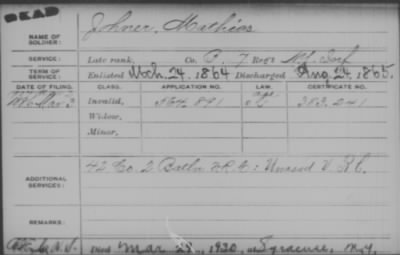 DEAD
NAME OF SOLDIER: Johner, Mathias
SERVICE: Late rank, Co. C, 7 Reg't Inf
TERM OF SERVICE: Enlisted Mch. 24, 1864 Discharged Aug. 24, 1865.
DATE OF FILING. CLASS. APPLICATION NO. LAW. CERTIFICATE NO.
Mar 3 Invalid, 564.891 383.241
Widow,
Minor,
ADDITIONAL SERVICES: 42 Co. 2 Batln V.R.C.; Unasgd V.R.C.
REMARKS:
Died Mar 29, 1920, at Syracuse, N.Y.